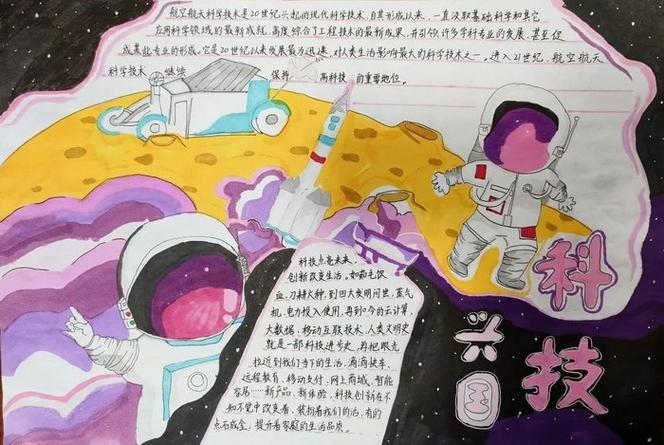 航空航天科学技术是20世纪兴起的现代科学技术,自其形成以来,一直汲取基础科学和其它
应用科学领域的最新成就,高度综合了工程技术的最新成果,并引领许多学科专业的发展,甚至促
成某些专业的形成。它是20世纪以来发展最为迅速,对人类生活影响最大的科学技术之一。进入21世纪,航空航天
科学技术 继续 保持 高科技 的重要地位。
科技点亮未来,
创新改变生活。如茹毛饮
血,刀耕火种,到四大发明问世,蒸气
机,电力投入使用,再到今的云计算,
大数据、移动互联技术,人类文明史
就是一部科技进步史。再把眼光
拉近到我们当下的生活,滴滴快车、
远程教育、移动支付、网上商城、智能
容易……新产品、新体验,科技创新在不
知不觉中改变着、装扮着我们的活,有的
点石成金,提升着家庭的生活品质。
科
技
兴
国